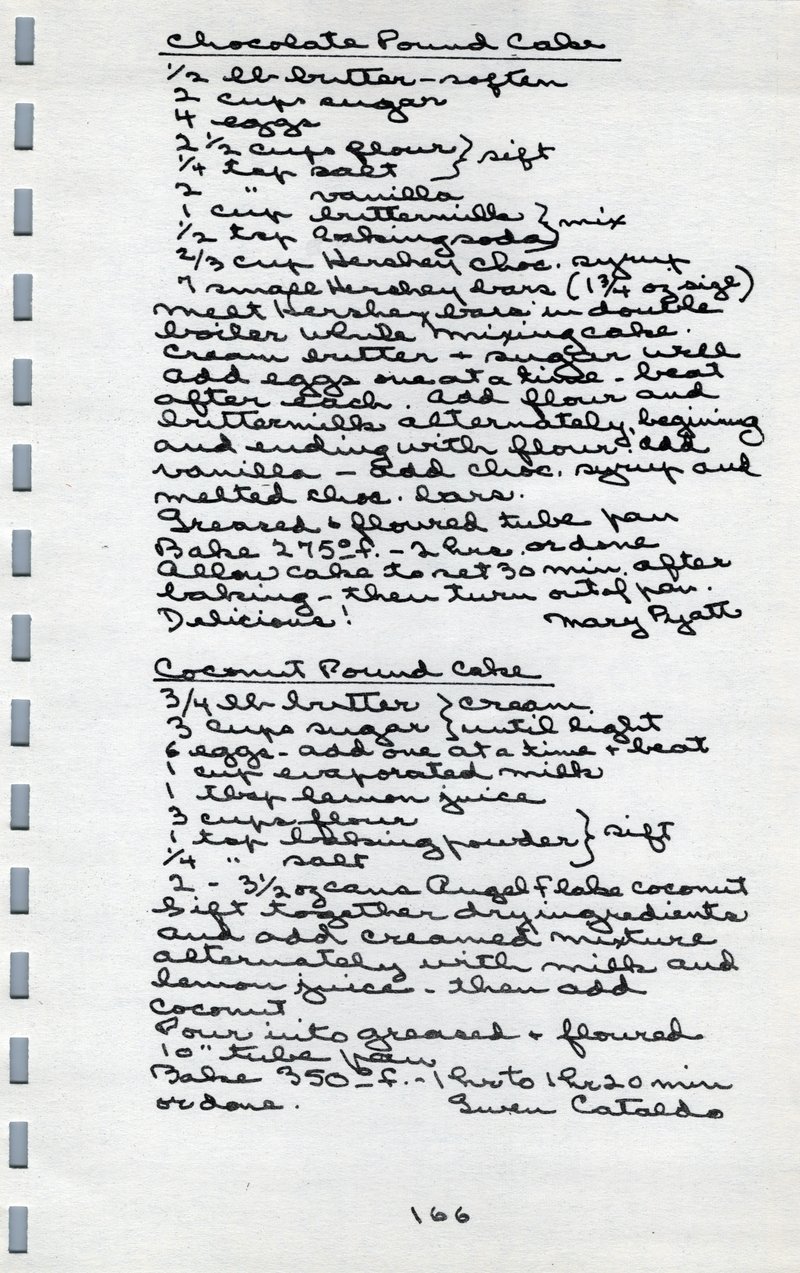 Chocolate Pound Cake
1/2 lb butter - soften
2 cups sugar
4 eggs
2 1/2 cups flour } sift
1/4 tsp salt
2 " vanilla
1 cup buttermilk } mix
1/2 tsp baking soda
2/3 cup Hershey choc. syrup
7 small Hershey bars (1 3/4 oz size)
Melt Hershey bars in double
boiler while mixing cake.
Cream butter + sugar well
Add eggs one at a time - beat
after each. Add flour and
buttermilk alternately, begining
and ending with flour. Add
vanilla - add choc. syrup and
melted choc. bars.
Greased & floured tube pan
Bake 275º f. - 2 hrs. or done
Allow cake to set 30 min. after
baking - then turn out of pan.
Delicious! Mary Pyatt
Coconut Pound Cake
3/4 lb butter } cream
3 cups sugar } until light
6 eggs - add one at a time + beat
1 cup evaporated milk
1 tbsp lemon juice
3 cups flour
1 tsp baking powder } sift
1/4 " salt
2 - 3 1/2 oz cans Angel flake coconut
Sift together dry ingredients
and add creamed mixture
alternately with milk and
lemon juice - then add
coconut
Pour into greased + floured
10" tube pan
Bake 350º f. - 1 hr to 1 hr 20 min
or done. Gwen Cataldo
166